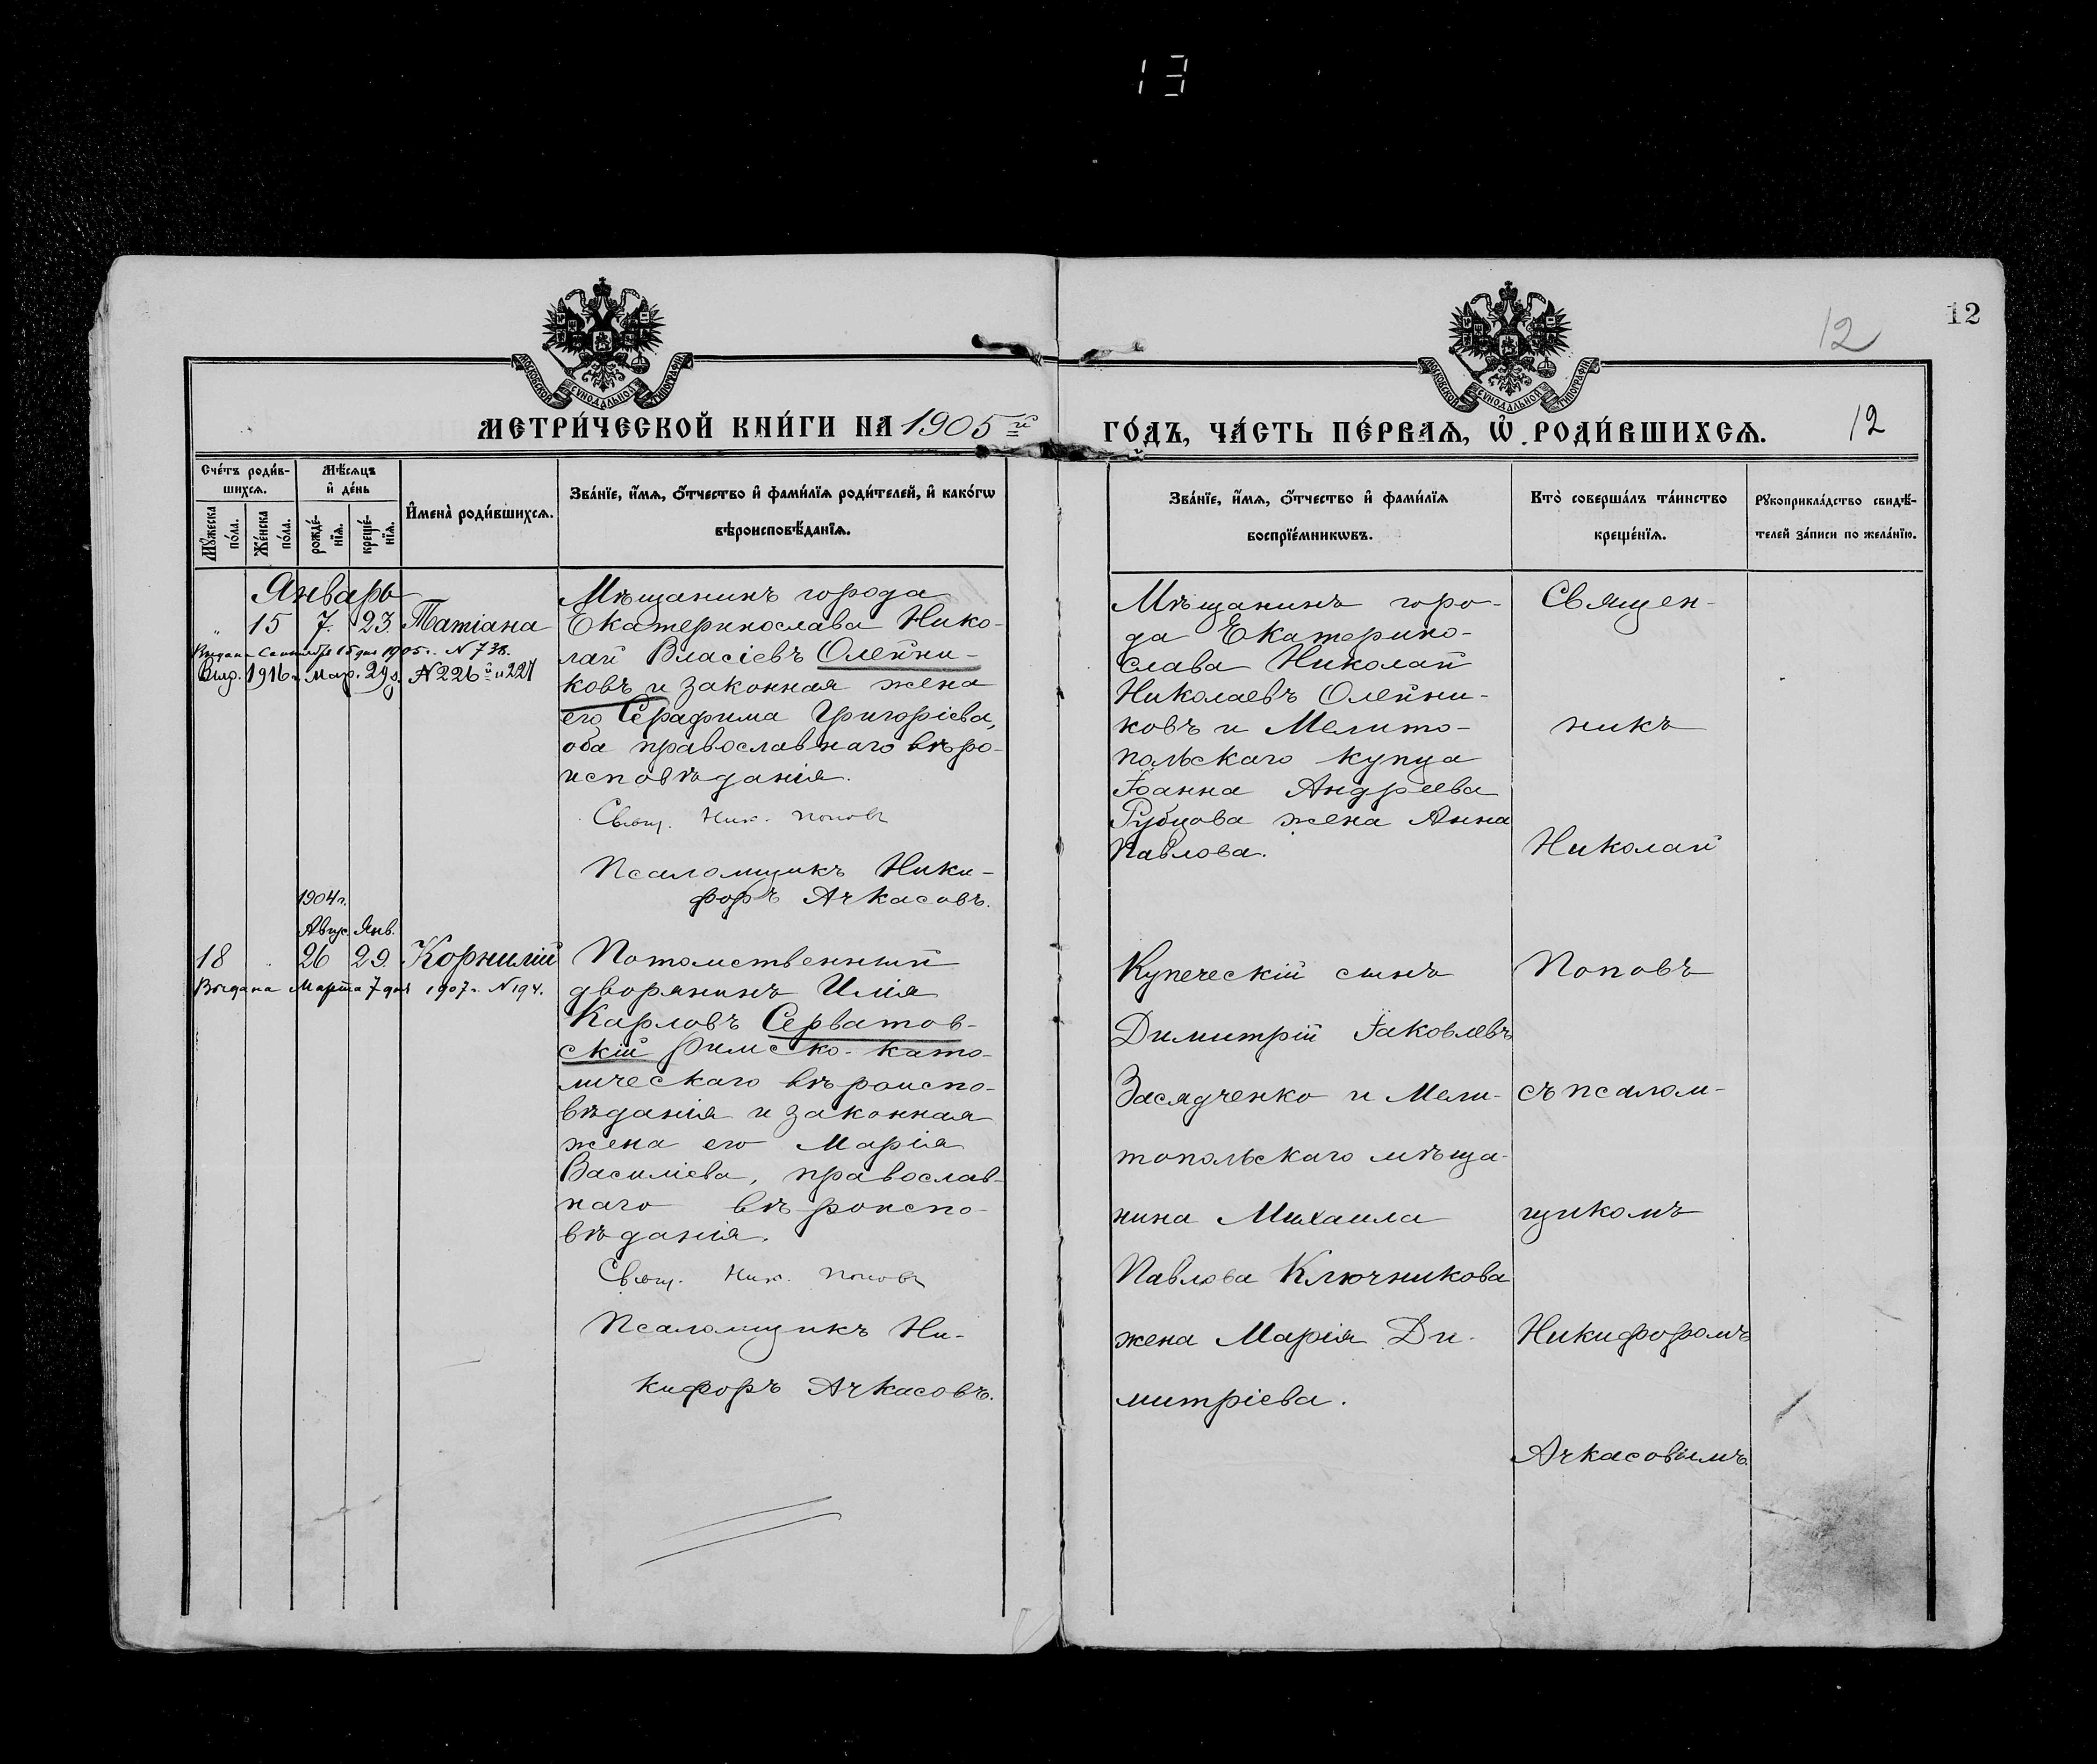 13
12
12
12
МОСКОВСКОЙ СѴНОДАЛЬНОЙ ТИПОГРАФІИ
МОСКОВСКОЙ СѴНОДАЛЬНОЙ ТИПОГРАФІИ
МЕТРИ́ЧЕСКОЙ КНИ́ГИ НА 1905 й
ГО́ДЪ, ЧА́СТЬ ПЕ́РВАѦ, Ѡ РОДИ́ВШИХСѦ.
Сче́тъ роди́в-
шихсѧ.
Мꙋ́жеска
по́ла.
Же́нска
по́ла.
Мѣ́сѧцъ
и҆ де́нь
рожде́-
нїѧ.
креще́-
нїѧ.
И҆мена̀ роди́вшихсѧ.
Зва́нїе, и҆́мѧ, ѻ҆́тчество и҆ фами́лїѧ роди́телей, и҆ како́гѡ
вѣроисповѣ́данїѧ.
Зва́нїе, и҆́мѧ, ѻ҆́тчество и҆ фами́лїѧ
воспрїе́мникѡвъ.
Кто̀ соверша́лъ та́инство
креще́нїѧ.
Рꙋкоприкла́дство свидѣ́-
телей за́писи по жела́нїю.
Январь
" 15 7. 23. Татіана
Выдана Сентября 15 дня 1905 г. N 738.
Выд. 1916 г. Мар. 29 д. N 226 й и 227
Мѣщанинъ города
Екатеринослава Нико-
лай Власіевъ Олейни-
ковъ и законная жена
его Серафима Григоріева,
оба православнаго вѣро-
исповѣданія.
Свящ. Ник. Поповъ
Псаломщикъ Ники-
форъ Ачкасовъ.
Мѣщанинъ горо-
да Екатерино-
слава Николай
Николаевъ Олейни-
ковъ и Мелито-
польскаго купца
Іоанна Андреева
Рубцова жена Анна
Павлова.
Священ-
никъ
Николай
1904 г.
Авгус. Янв.
18 " 26 29. Корнилій
Выдана Марта 7 дня 1907 г. N 194.
Потомственный
дворянинъ Илія
Карловъ Серватов-
скій римско-като-
лическаго вѣроиспо-
вѣданія и законная
жена его Марія
Василіева, православ-
наго вѣроиспо-
вѣданія.
Свящ. Ник. Поповъ
Псаломщикъ Ни-
кифоръ Ачкасовъ.
Купеческій сынъ
Димитрій Іаковлевъ
Засядченко и Мели-
топольскаго мѣща-
нина Михаила
Павлова Ключникова
жена Марія Ди-
митріева.
Поповъ
съ псалом-
щикомъ
Никифоромъ
Ачкасовымъ.